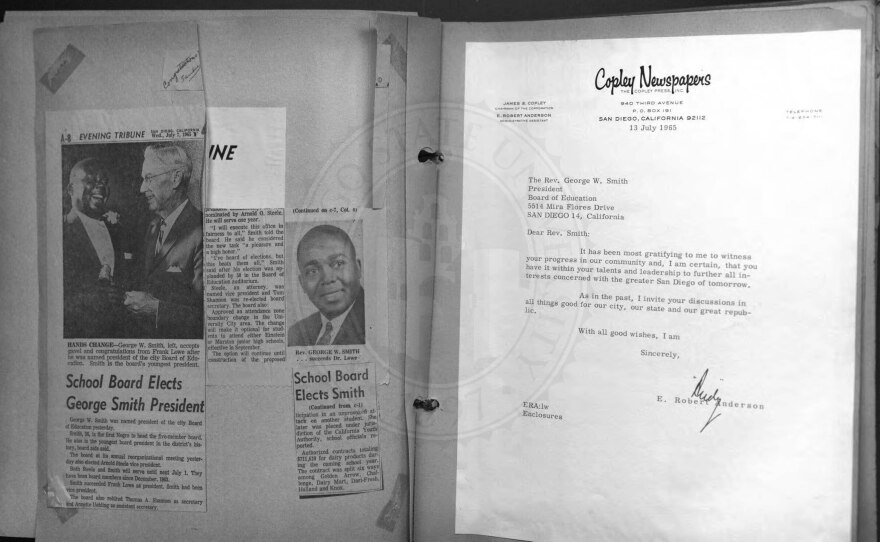 Congratulations
A-8 EVENING TRIBUNE SAN DIEGO, CALIFORNIA
Wed., July 7, 1965
HANDS CHANGE—George W. Smith, left, accepts
gavel and congratulations from Frank Lowe after
he was named president of the city Board of Edu-
cation. Smith is the board's youngest president.
School Board Elects
George Smith President
George W. Smith was named president of the city Board
of Education yesterday.
Smith, 36, is the first Negro to head the five-member board.
He also is the youngest board president in the district's his-
tory, board aide said.
The board at its annual reorganizational meeting yester-
day also elected Arnold Steele vice president.
Both Steele and Smith will serve until next July 1. They
have been board members since December, 1963.
Smith succeeded Frank Lowe as president. Smith had been
vice president.
The board also relisted Thomas A. Shannon as secretary
and Annette Uebling as assistant secretary.
UNE
nominated by Arnold O. Steele.
He will serve one year.
"I will execute this office in
fairness to all," Smith told the
board. He said he considered
the new task "a pleasure and
a high honor."
"I've heard of elections, but
this beats them all," Smith
said after his election was ap-
plauded by 50 in the Board of
Education auditorium.
Steele, an attorney, was
named vice president and Tom
Shannon was re-elected board
secretary. The board also:
Approved an attendance zone
boundary change in the Uni-
versity City area. The change
will make it optional for stud-
ents to attend either Einstein
or Marston junior high schools,
effective in September.
The option will continue until
construction of the proposed
(Continued on c-7, Col. 4)
Rev. GEORGE W. SMITH
. . . succeeds Dr. Lowe
School Board
Elects Smith
(Continued from c-1)
ticipation in an unprovoked at-
tack on another student. She
later was placed under juris-
diction of the California Youth
Authority, school officials re-
ported.
Authorized contracts totaling
for dairy products dur-
ing the coming school year.
The contract was split six ways
among Golden Arrow, Chal-
lenge, Dairy Mart, Dari-Fresh,
Holland and Knox.
Copley Newspapers
THE COPLEY PRESS, INC.
JAMES S. COPLEY
CHAIRMAN OF THE CORPORATION
E. ROBERT ANDERSON
ADMINISTRATIVE ASSISTANT
940 THIRD AVENUE
P. O. BOX 191
SAN DIEGO, CALIFORNIA 92112
TELEPHONE
13 July 1965
The Rev. George W. Smith
President
Board of Education
5514 Mira Flores Drive
SAN DIEGO 14, California
Dear Rev. Smith:
It has been most gratifying to me to witness
your progress in our community and, I am certain, that you
have it within your talents and leadership to further all in-
terests concerned with the greater San Diego of tomorrow.
As in the past, I invite your discussions in
all things good for our city, our state and our great repub-
lic.
With all good wishes, I am
Sincerely,
E. Robert Anderson
ERA:lw
Enclosures